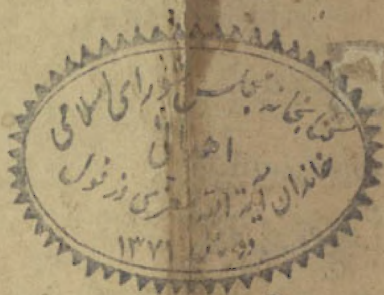 کتابخانه مجلس شورای اسلامی
اهدائی
خاندان آیة الله معزی دزفولی
۱۳۷۱